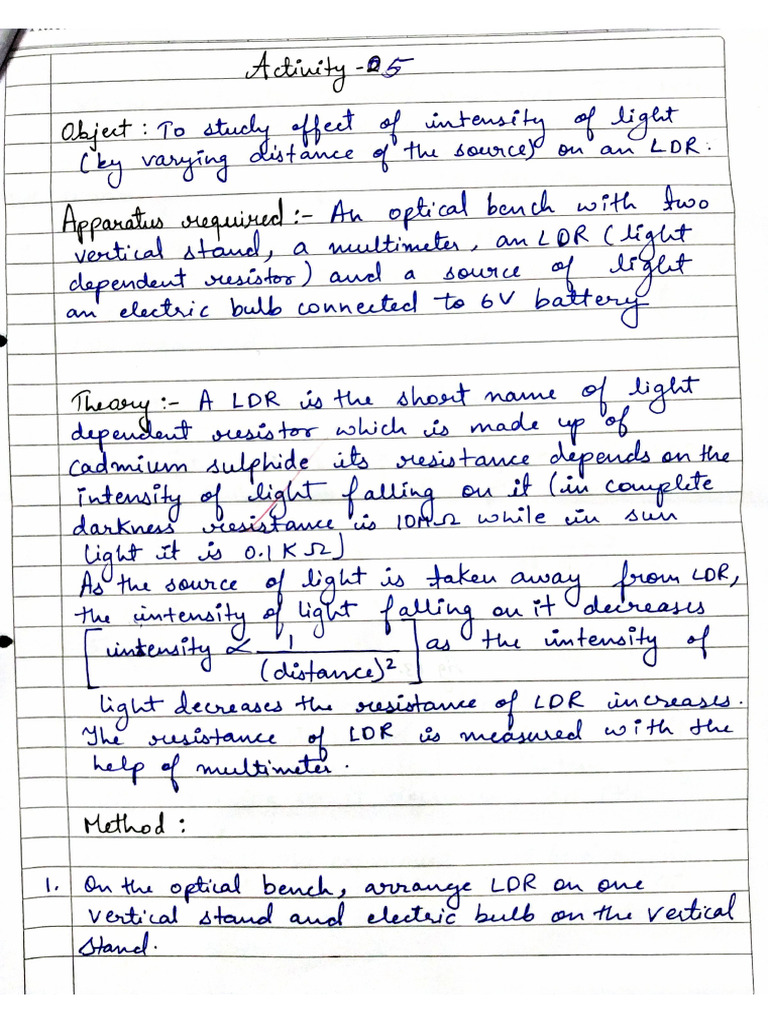 Activity - 05
Object : To study effect of intensity of light
(by varying distance of the source) on an LDR.
Apparatus required :- An optical bench with two
vertical stand, a multimeter, an LDR (light
dependent resistor) and a source of light
an electric bulb connected to 6V battery
Theory :- A LDR is the short name of light
dependent resistor which is made up of
cadmium sulphide its resistance depends on the
intensity of light falling on it (in complete
darkness resistance is 10MΩ while in sun
light it is 0.1KΩ)
As the source of light is taken away from LDR,
the intensity of light falling on it decreases
[intensity ∝ 1/(distance)²] as the intensity of
light decreases the resistance of LDR increases.
The resistance of LDR is measured with the
help of multimeter.
Method :
1. On the optical bench, arrange LDR on one
vertical stand and electric bulb on the vertical
stand.